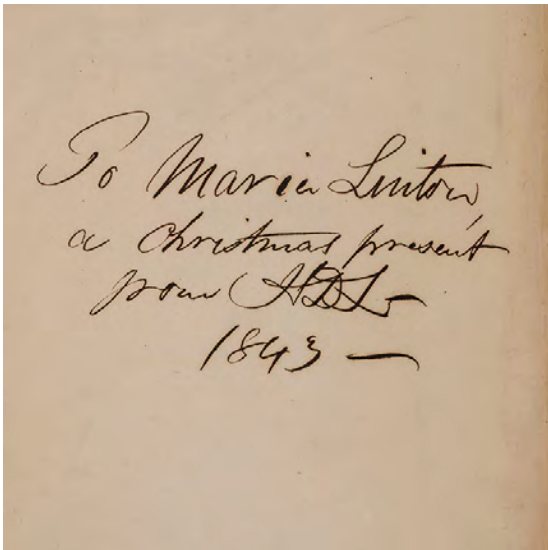 To Maria Linton,
a Christmas present
from HDL
1843 —